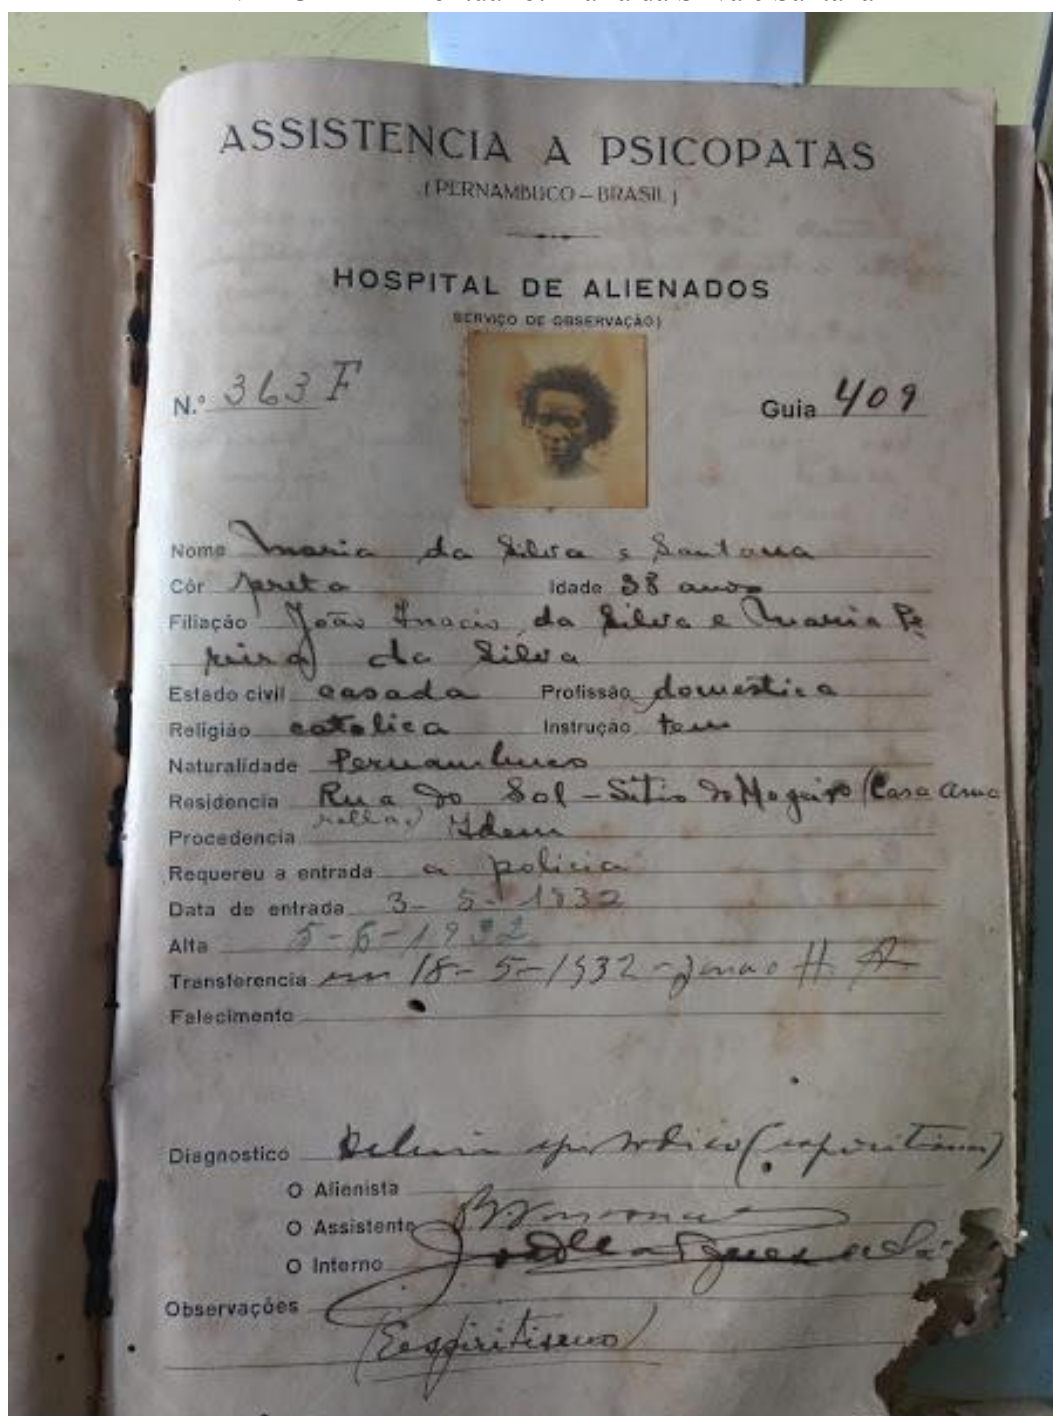 ASSISTENCIA A PSICOPATAS
(PERNAMBUCO – BRASIL)
HOSPITAL DE ALIENADOS
SERVIÇO DE OBSERVAÇÃO)
N.º 363 F
Guia 409
Nome Maria da Silva e Santana
Côr preta Idade 38 anos
Filiação João Inacio da Silva e Maria Pe
reira da Silva
Estado civil casada Profissão domestica
Religião catolica Instrução tem
Naturalidade Pernambuco
Residencia Rua do Sol – Sitio do (Casa Ama
rella)
Procedencia Idem
Requereu a entrada a policia
Data de entrada 3-5-1932
Alta 5-6-1932
Transferencia em 18-5-1932 - para o H. A.
Falecimento
Diagnostico Delirio episodico (espiritismo)
O Alienista
O Assistente
O Interno
Observações
(Espiritismo)